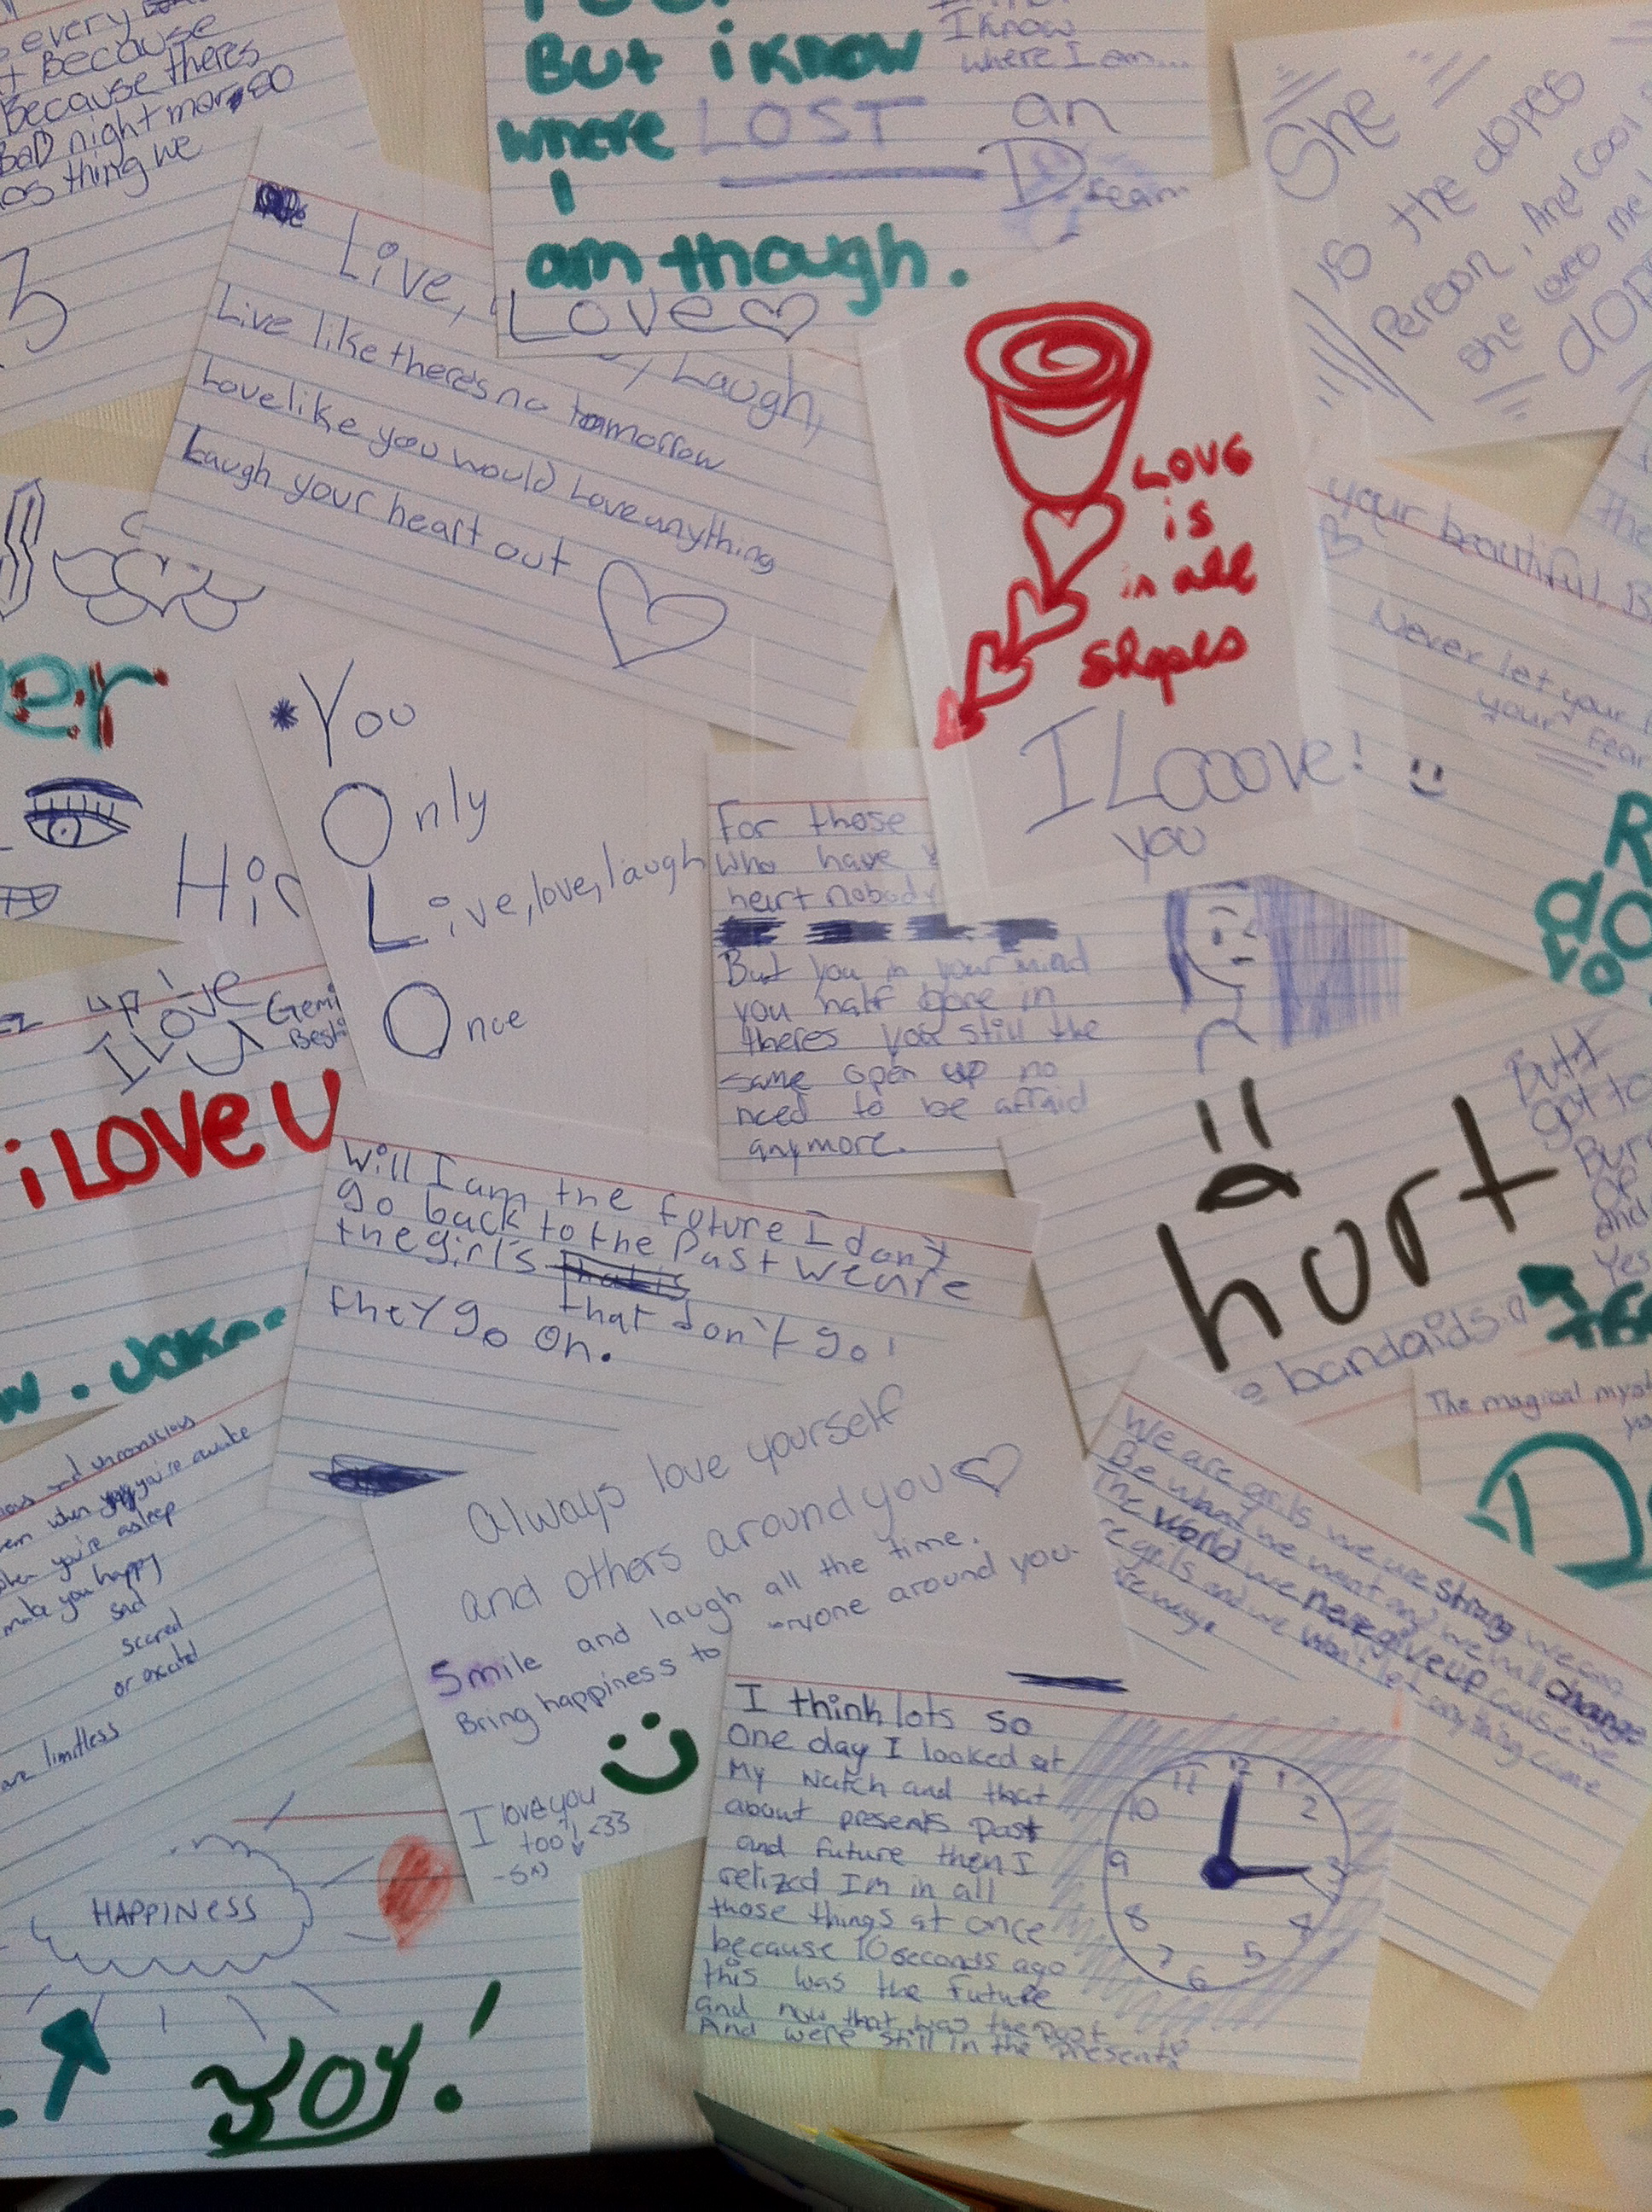 every
Because
Because theres
BaD night mares so
as thing we
But i know
where
I
am though.
LOST
I know
where I am...
an
Dream
Love
She
is the dopes
Person, And cool
she loves me
Live,
Laugh,
Live like there's no tomorrow
Love like you would Love anything
Laugh your heart out
Love
is
in all
shapes
I Looove!
you
your beautiful,
Never let your
your fear
er
* You
Only
Live, love, laugh
Once
For those
who have
heart nobody
But you in your mind
you half gone in
theres you still the
same open up no
need to be afraid
anymore.
I Love
U
Gemi
Best
i Love U
hurt
But I
got to
and
Yes
bandaids
Will I am the future I don't
go back to the Past we are
the girl's
that don't go!
they go on.
and unconscious
when you're awake
when you're asleep
make you happy
sad
scared
or excited
are limitless
Always love yourself
and others around you
Smile and laugh all the time.
Bring happiness to
eryone around you.
I love you
too! <33
The magical
D
We are girls we are strong we can
Be what we want and we will change
The world we never give up cause we
re girls and we won't let anything come
HAPPINESS
JOY!
I think lots so
One day I looked at
My watch and that
about presents past
and future then I
relized Im in all
those things at once
because 10 seconds ago
this was the future
and now that was the past
And were still in the present
12
11
1
10
2
9
3
8
4
7
5
6